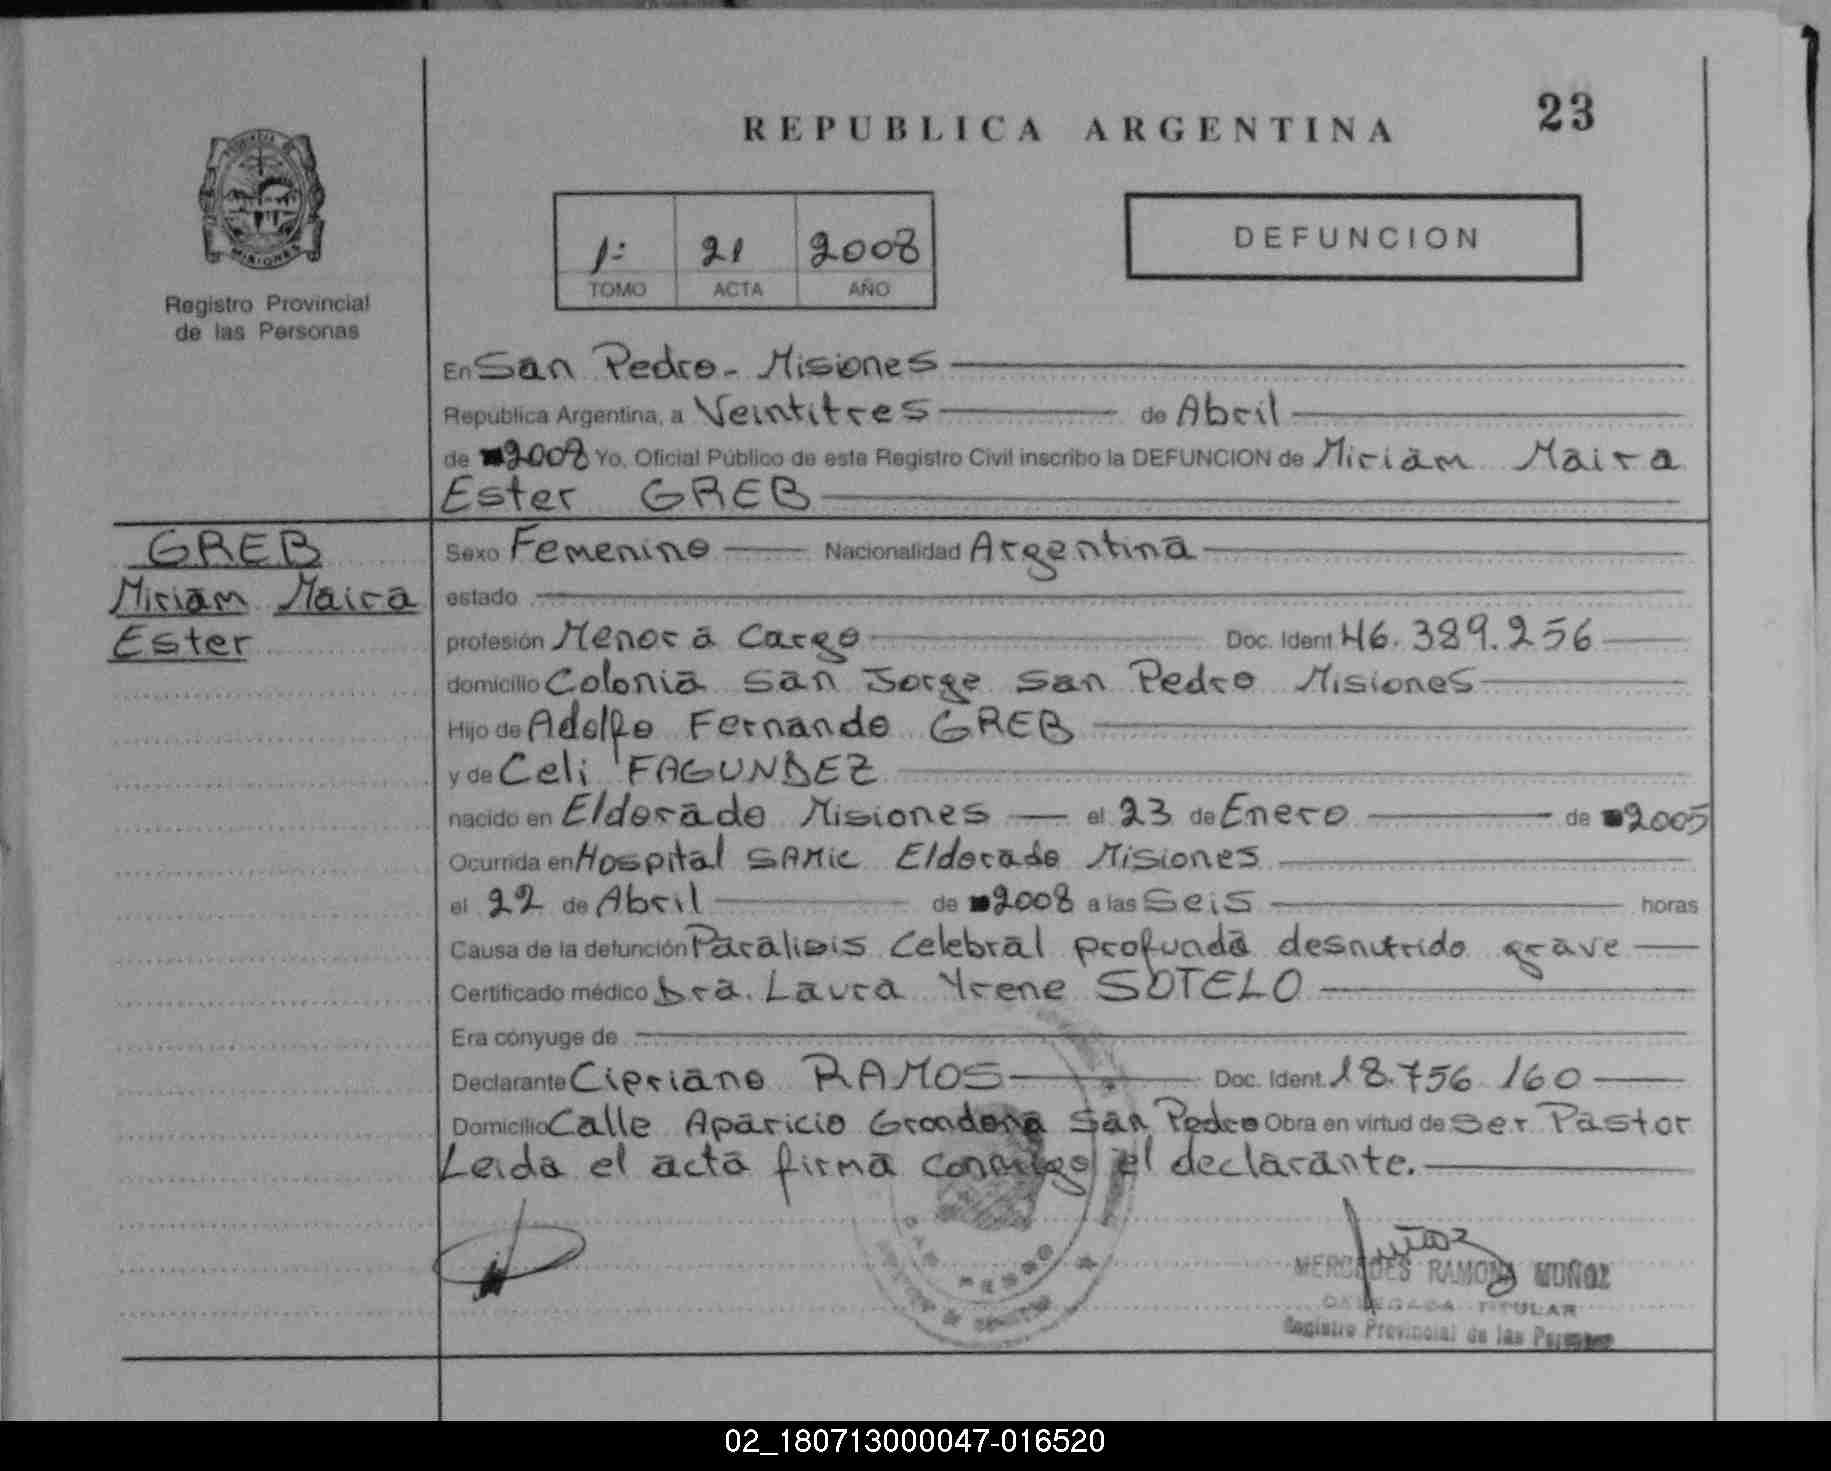 REPUBLICA ARGENTINA
23
MISIONES
Registro Provincial
de las Personas
1: 21 2008
TOMO ACTA AÑO
DEFUNCION
En San Pedro - Misiones
República Argentina, a Veintitres de Abril
de 2008 Yo, Oficial Público de este Registro Civil inscribo la DEFUNCION de Miriam Maira
Ester GREB
GREB
Miriam Maira
Ester
Sexo Femenino Nacionalidad Argentina
estado
profesión Menor a Cargo Doc. Ident 46.389.256
domicilio Colonia San Jorge San Pedro Misiones
Hijo de Adolfo Fernando GREB
y de Celi FAGUNDEZ
nacido en Eldorado Misiones el 23 de Enero de 2005
Ocurrida en Hospital SAMic Eldorado Misiones
el 22 de Abril de 2008 a las Seis horas
Causa de la defunción Paralisis Celebral profunda desnutrido grave
Certificado médico Dra. Laura Yrene SOTELO
Era cónyuge de
Declarante Cipriano RAMOS Doc. Ident. 18.756.160
Domicilio Calle Aparicio Grondona San Pedro Obra en virtud de Ser Pastor
Leida el acta firma conmigo el declarante.
SAN PEDRO
MERCEDES RAMONA MUÑOZ
DELEGADA TITULAR
Registro Provincial de las Personas
02_180713000047-016520